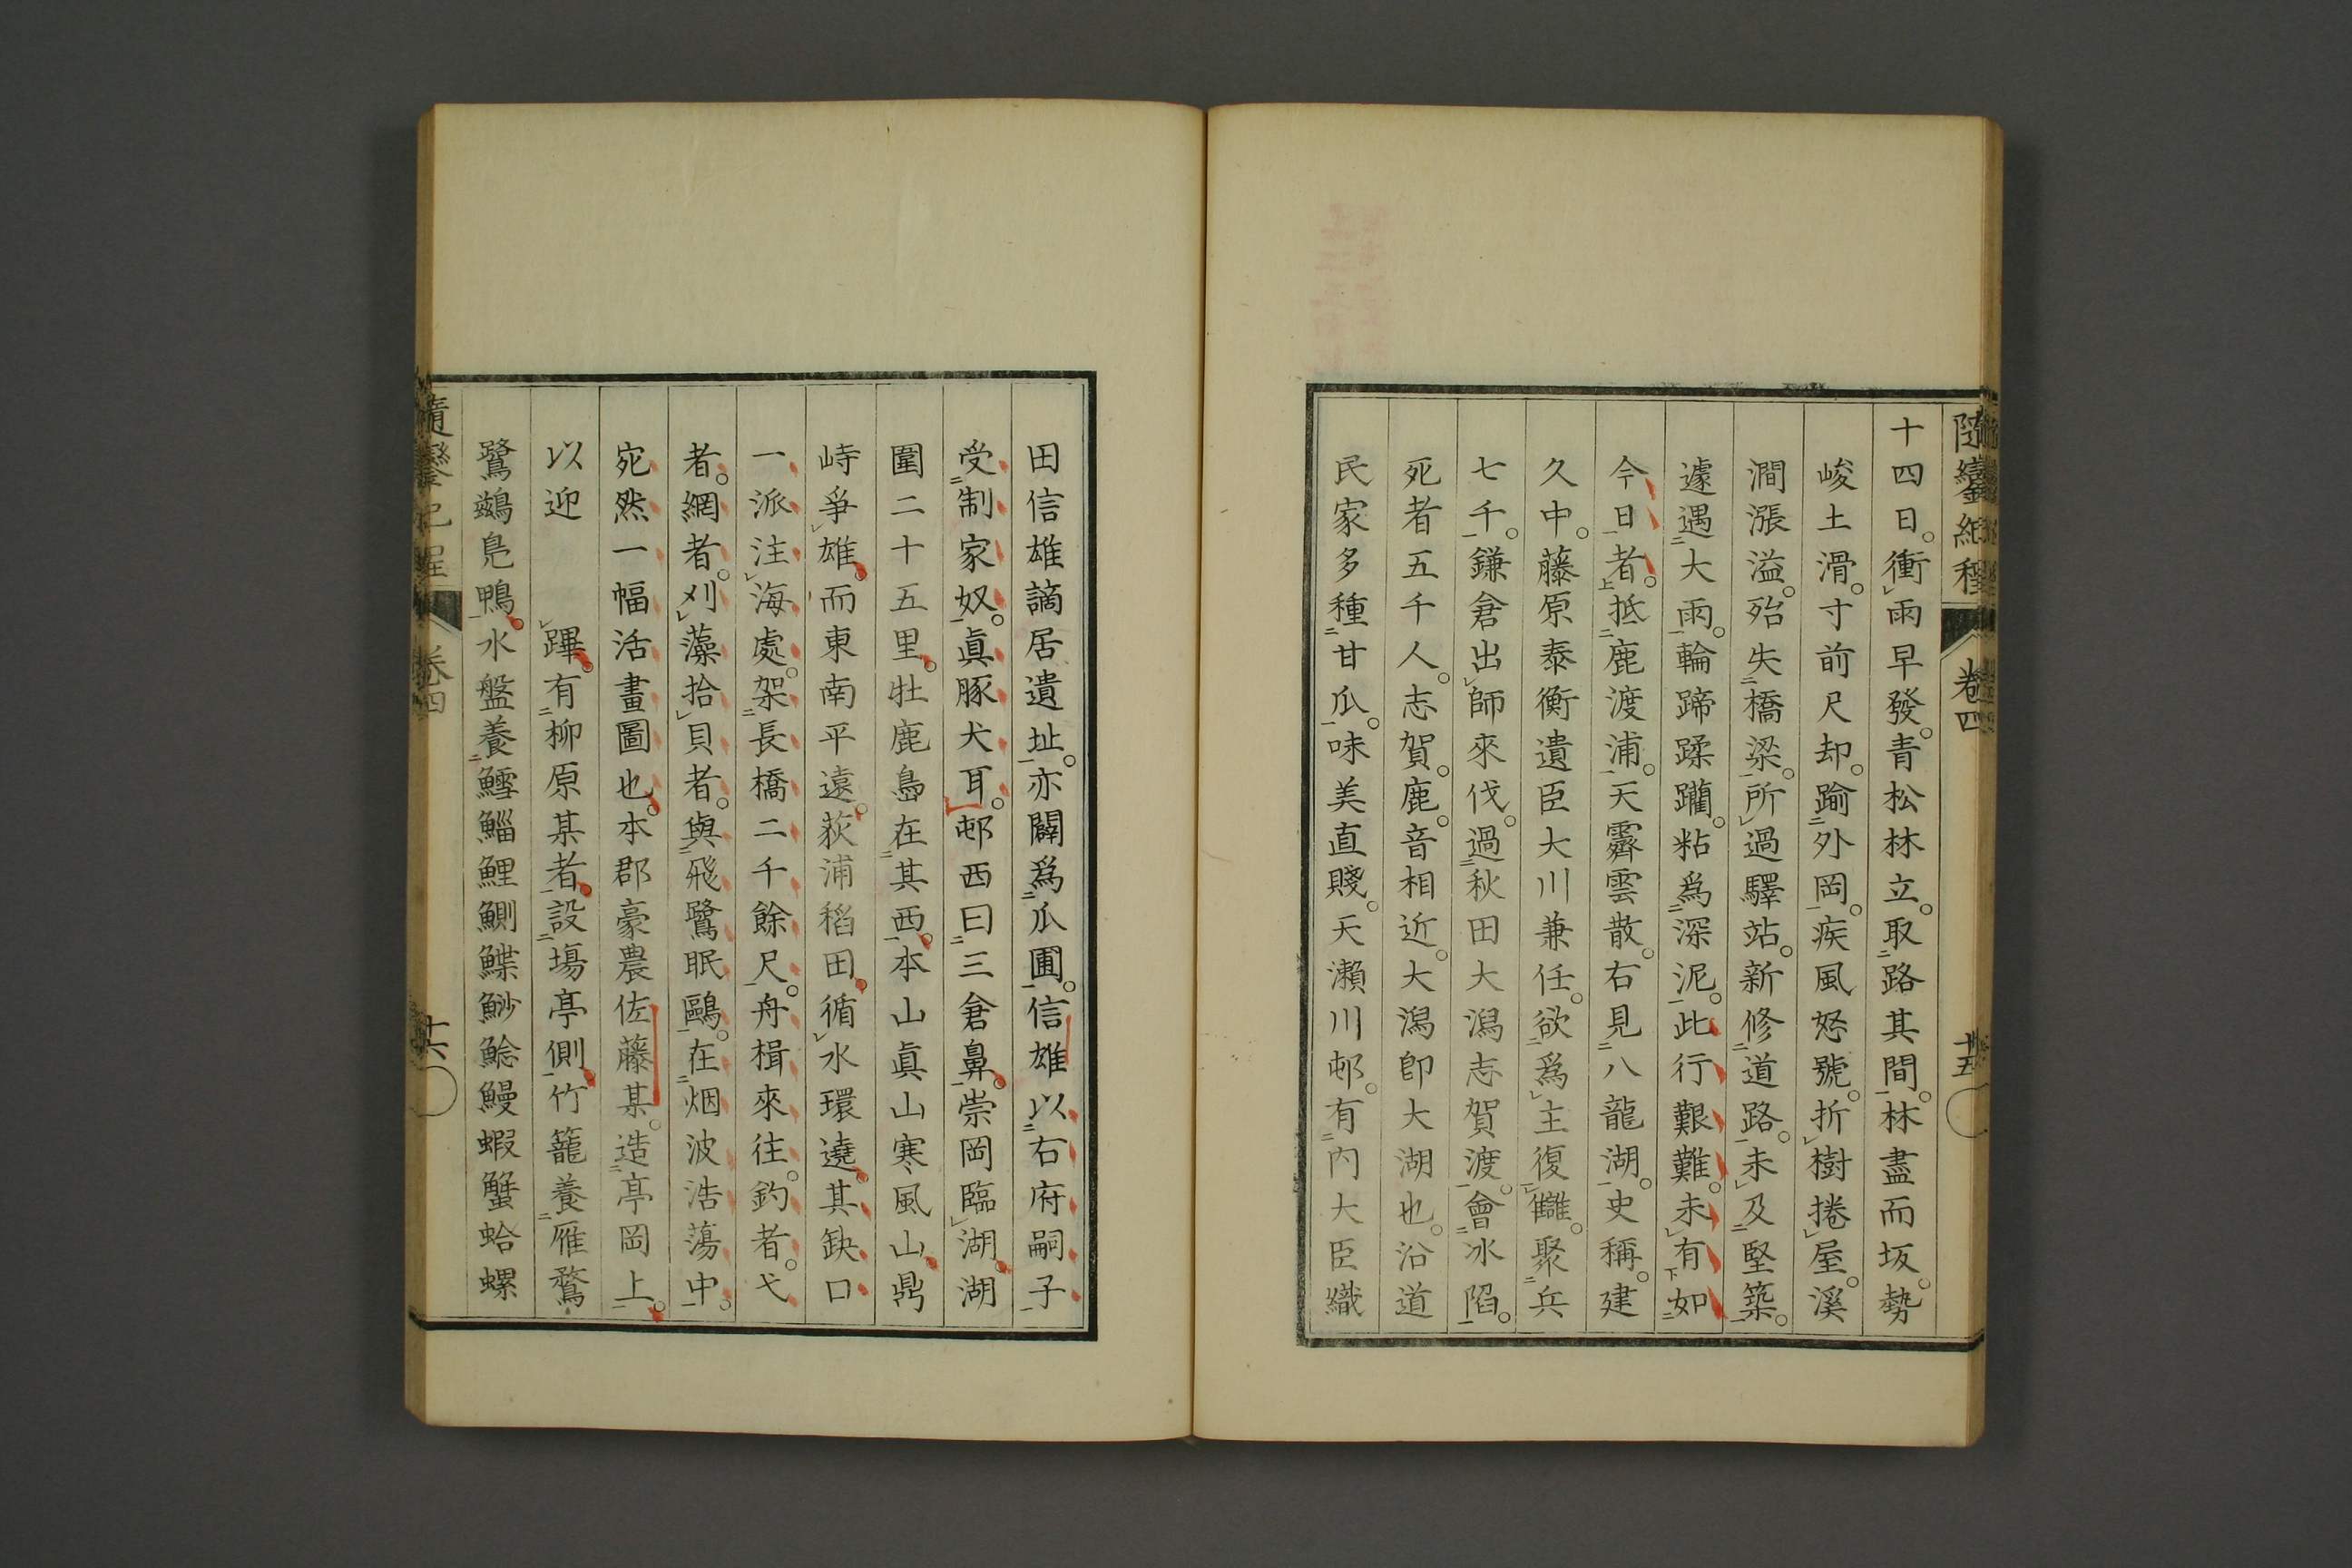 隨鑾紀程 卷四 十五
十四日。衝雨早發。青松林立。取路其間。林盡而坂。勢
峻土滑。寸前尺却。踰外岡。疾風怒號。折樹捲屋。溪
澗漲溢。殆失橋梁。所過驛站。新修道路。未及堅築。
遽遇大雨。輪蹄蹂躪。粘爲深泥。此行艱難。未有如
今日者。抵鹿渡浦。天霽雲散。右見八龍湖。史稱。建
久中。藤原泰衡遺臣大川兼任。欲爲主復讎。聚兵
七千。鎌倉出師來伐。過秋田大潟志賀渡。會冰陷。
死者五千人。志賀。鹿。音相近。大潟卽大湖也。沿道
民家多種甘瓜。味美直賤。天瀨川邨。有內大臣織
田信雄謫居遺址。亦闢爲瓜圃。信雄以右府嗣子
受制家奴。眞豚犬耳。邨西曰三倉鼻。崇岡臨湖。湖
圍二十五里。牡鹿島在其西。本山眞山寒風山。鼎
峙爭雄。而東南平遠。荻浦稻田。循水環遶。其缺口
一派注海處。架長橋二千餘尺。舟楫來往。釣者。弋
者。網者。刈藻拾貝者。與飛鷺眠鷗。在烟波浩蕩中。
宛然一幅活畫圖也。本郡豪農佐藤某。造亭岡上。
以迎　蹕。有柳原某者。設場亭側。竹籠養雁鶩
鷺鷀鳧鴨。水盤養鱈鯔鯉鰂鰈魦鯰鰻蝦蟹蛤螺
隨鑾紀程 卷四 十六